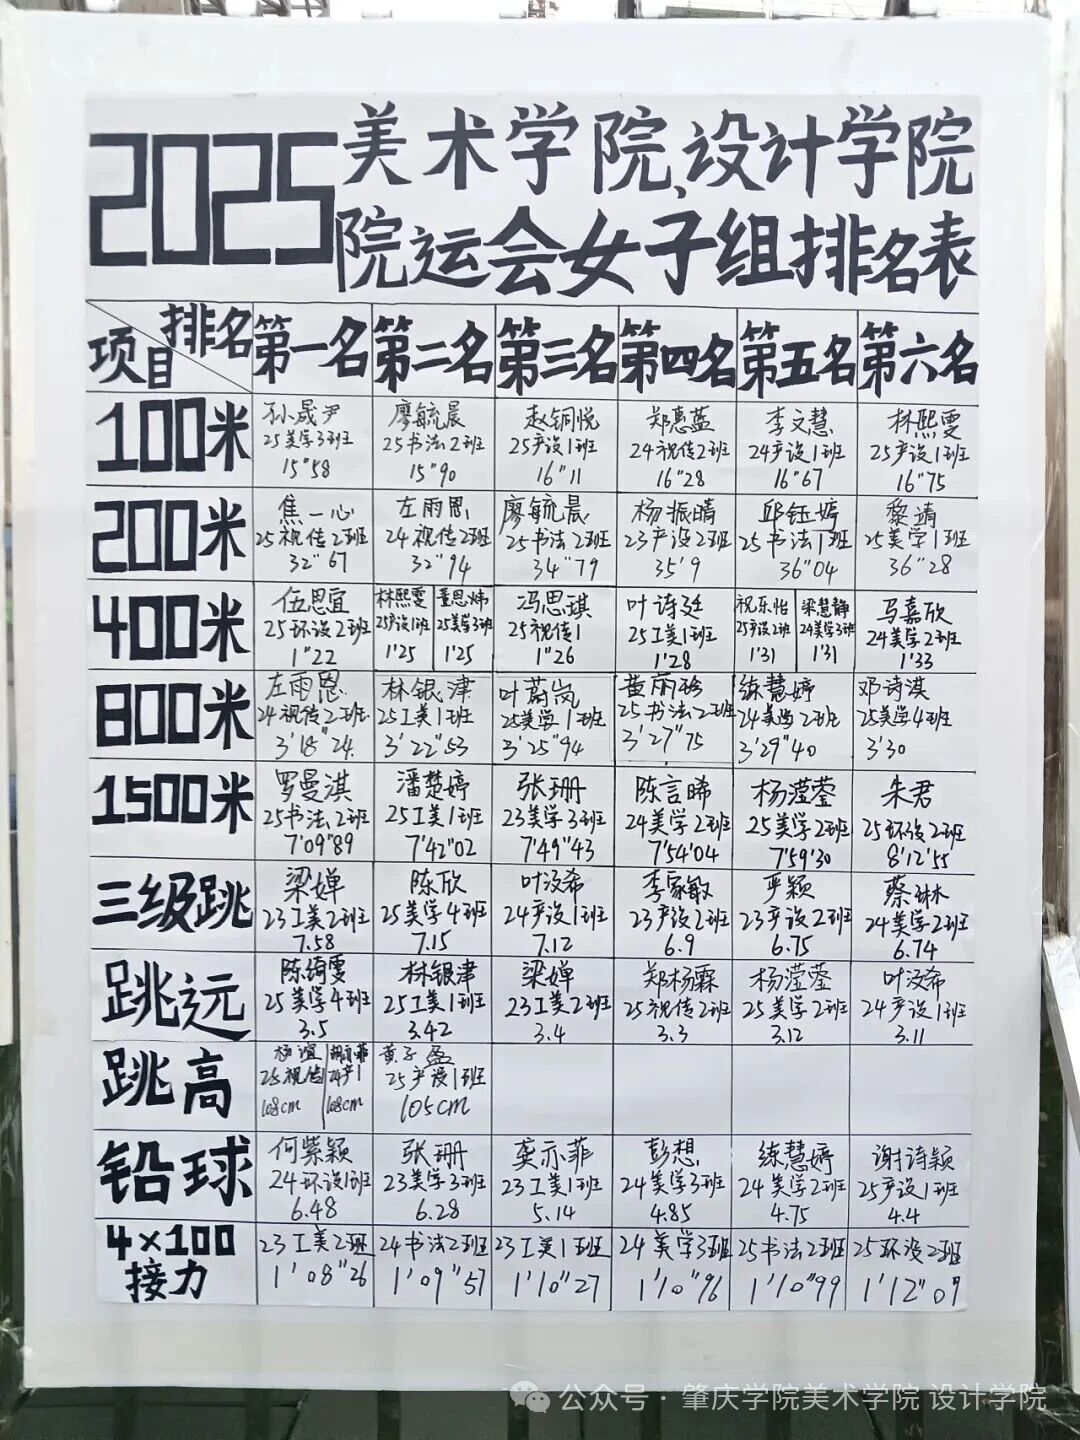 2025 美术学院、设计学院
院运会女子组排名表
项目 排名 第一名 第二名 第三名 第四名 第五名 第六名
100米
孙晟尹 廖毓晨 赵铜悦 郑惠蓝 李文慧 林熙雯
25美学3班 25书法2班 25产设1班 24视传2班 24产设1班 25产设1班
15"58 15"90 16"11 16"28 16"67 16"75
200米
焦一心 左雨恩 廖毓晨 杨振晴 邱钰婷 黎靖
25视传2班 24视传2班 25书法2班 23产设2班 25书法1班 25美学1班
32"67 32"94 34"79 35'9 36"04 36"28
400米
伍思宜 林熙雯 董恩炜 冯思琪 叶诗廷 祝乐怡 梁慧静 马嘉欣
25环设2班 25产设1班 25美学3班 25视传1 25工美1班 25产设2班 24美学3班 24美学2班
1"22 1'25 1'25 1"26 1'28 1'31 1'31 1'33
800米
左雨恩 林银津 叶蔚岚 黄雨珍 练慧婷 邓诗淇
24视传2班 25工美1班 25美学1班 25书法2班 24美学2班 25美学4班
3'18"24 3'22"53 3'25"94 3'27"75 3'29"40 3'30
1500米
罗曼淇 潘楚婷 张珊 陈言晞 杨滢蓥 朱君
25书法2班 25工美1班 23美学3班 24美学2班 25美学2班 25环设2班
7'09"89 7'42"02 7'49"43 7'54'04 7'59'30 8'12'55
三级跳
梁婵 陈欣 叶汶希 李家敏 严颖 蔡琳
23工美2班 25美学4班 24产设1班 23产设2班 23产设2班 24美学2班
7.58 7.15 7.12 6.9 6.75 6.74
跳远
陈绮雯 林银津 梁婵 郑杨霖 杨滢蓥 叶汶希
25美学4班 25工美1班 23工美2班 25视传2班 25美学2班 24产设1班
3.5 3.42 3.4 3.3 3.12 3.11
跳高
杨谊 黄子盈
25视传 24产1 25产设1班
108cm 108cm 105cm
铅球
何紫颖 张珊 龚亦菲 彭想 练慧婷 谢诗颖
24环设1班 23美学3班 23工美1班 24美学3班 24美学2班 25产设1班
6.48 6.28 5.14 4.85 4.75 4.4
4×100
接力
23工美2班 24书法2班 23工美1班 24美学3班 25书法2班 25环设2班
1'08"26 1'09"57 1'10"27 1'10"96 1'10"99 1'12"07
公众号·肇庆学院美术学院 设计学院